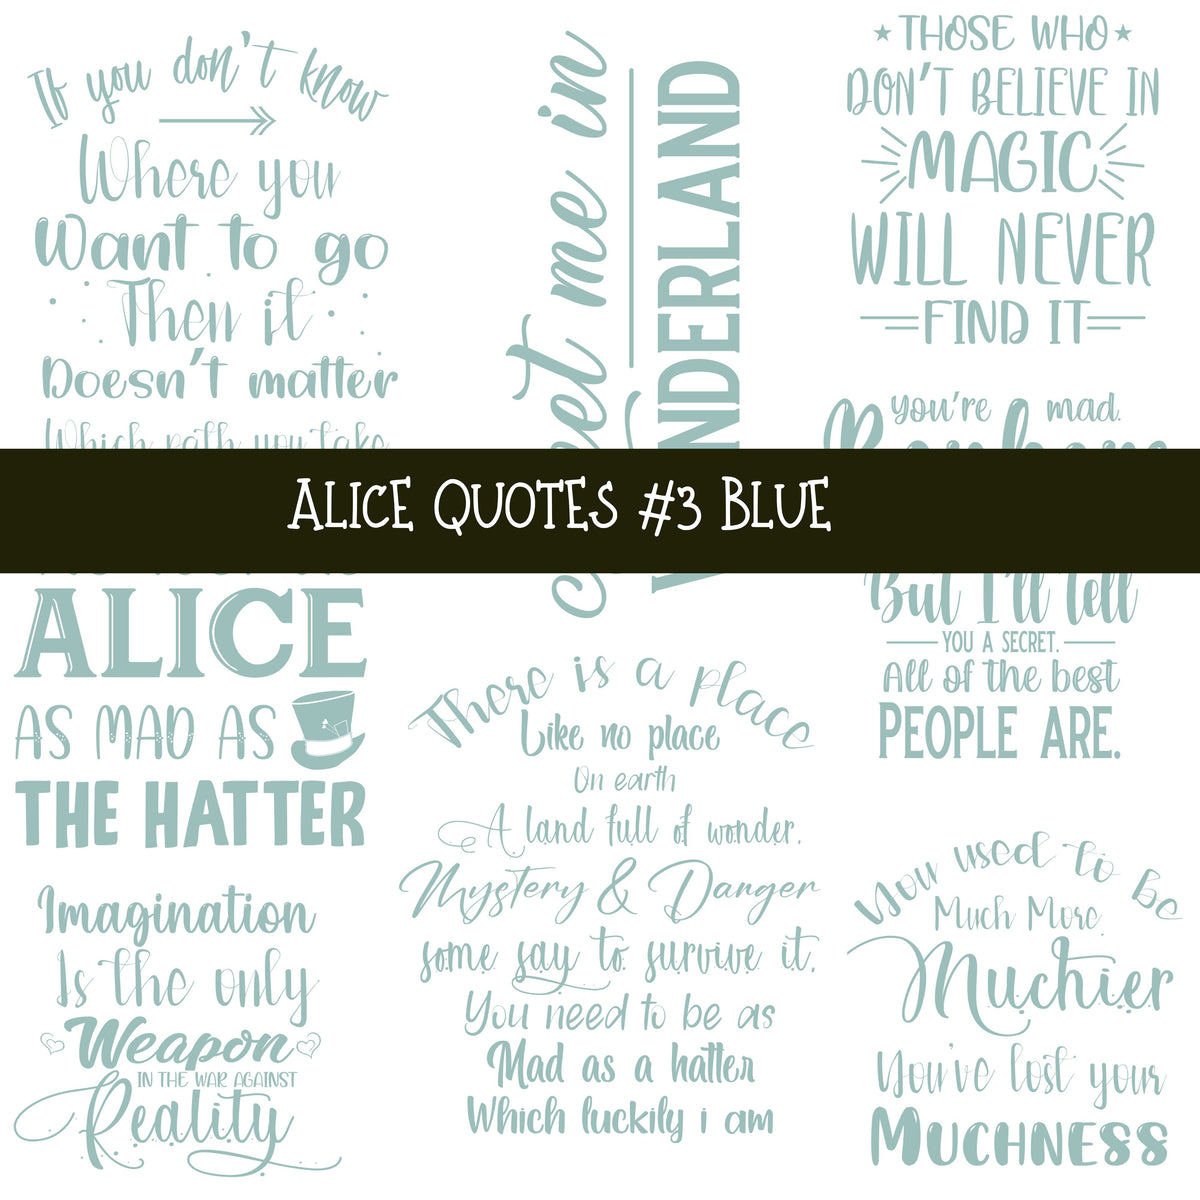 If you don't know
Where you
Want to go
Then it
Doesn't matter
Which path you take
meet me in
WONDERLAND
THOSE WHO
DON'T BELIEVE IN
MAGIC
WILL NEVER
FIND IT
You're mad.
Bonkers
ALICE QUOTES #3 BLUE
ALICE
AS MAD AS
THE HATTER
But I'll tell
YOU A SECRET.
All of the best
PEOPLE ARE.
Imagination
Is the only
Weapon
IN THE WAR AGAINST
Reality
There is a place
Like no place
On earth
A land full of wonder.
Mystery & Danger
some say to survive it.
You need to be as
Mad as a hatter
Which luckily i am
You used to be
Much More
Muchier
You've lost your
MUCHNESS